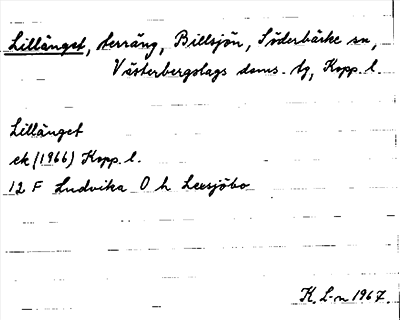 Lillänget, terräng, Billsjön, Söderbärke sn,
Västerbergslags doms. tg, Kopp. l.
Lillänget
ek (1966) Kopp. l.
12 F Ludvika O h Lersjöbo
K. L-n 1967.